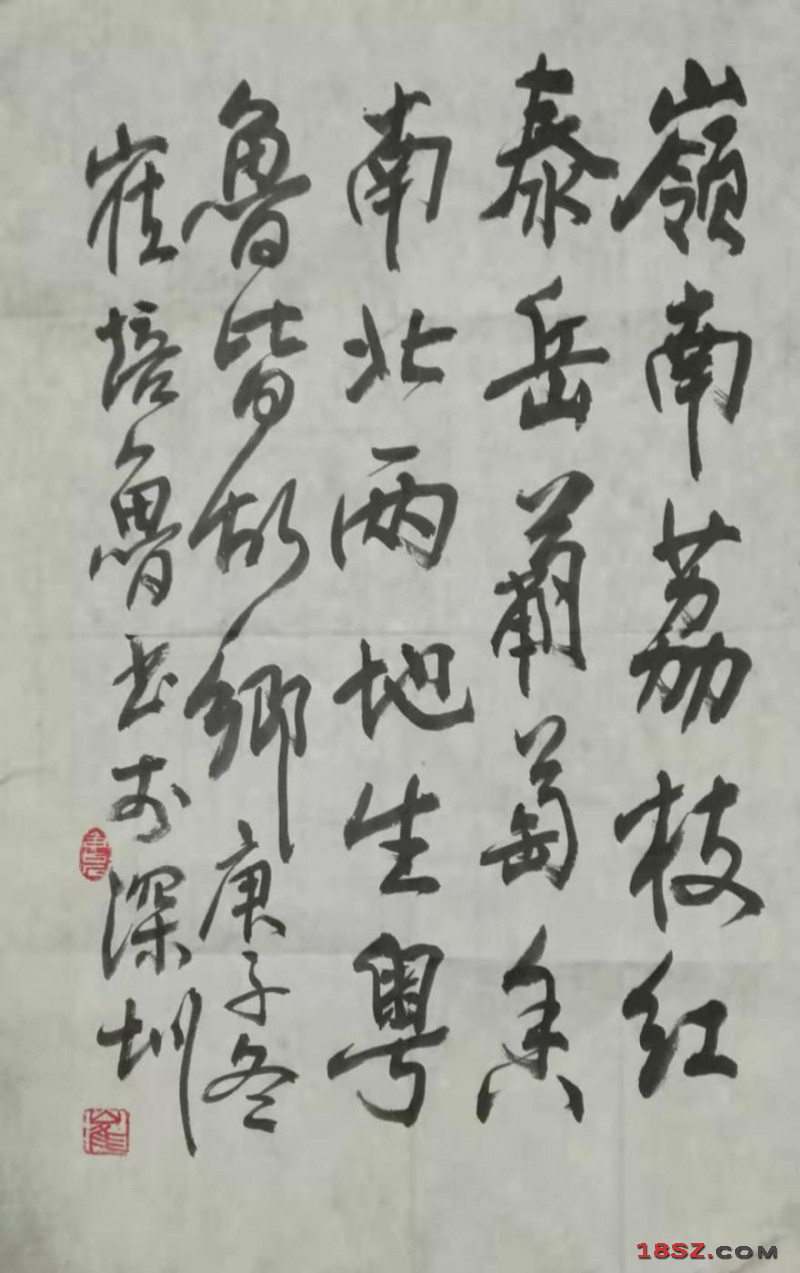 嶺南荔枝红
泰岳葡萄香
南北两地生粤
魯皆故鄉 庚子冬
崔培魯书于深圳
18SZ.COM